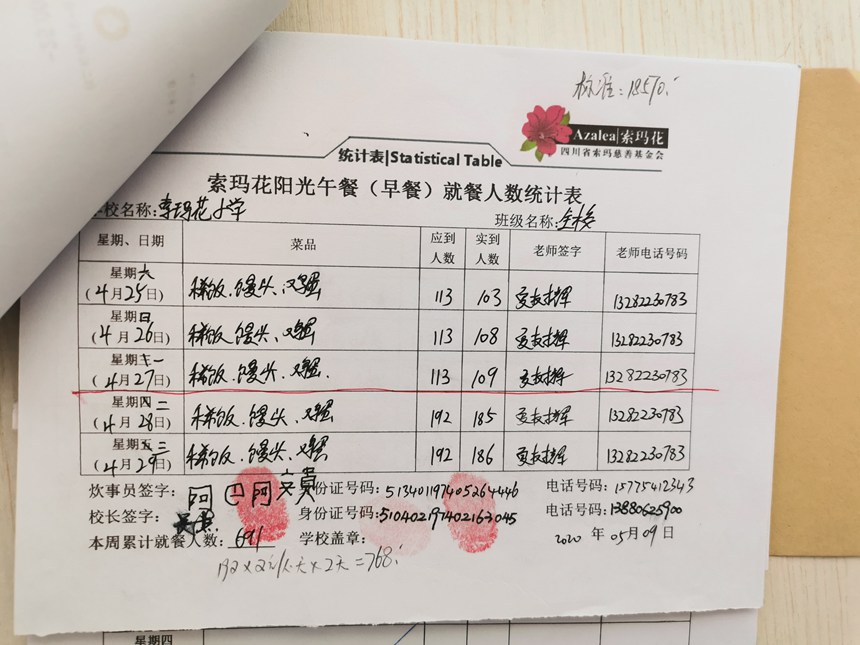 标准：1857元
Azalea|索玛花
四川省索玛慈善基金会
统计表|Statistical Table
索玛花阳光午餐（早餐）就餐人数统计表
校名称：索玛花小学 班级名称：全校
星期、日期 菜品 应到人数 实到人数 老师签字 老师电话号码
星期六（4月25日） 稀饭、馒头、鸡蛋 113 103 13282230783
星期日（4月26日） 稀饭、馒头、鸡蛋 113 108 13282230783
星期一（4月27日） 稀饭、馒头、鸡蛋 113 109 13282230783
星期二（4月28日） 稀饭、馒头、鸡蛋 192 185 13282230783
星期三（4月29日） 稀饭、馒头、鸡蛋 192 186 13282230783
炊事员签字： 阿巴阿 身份证号码：513401197405264446 电话号码：15775412343
校长签字： 身份证号码：510402197402163045 电话号码：13880625900
本周累计就餐人数：691 学校盖章： 2020 年 05 月 09 日
192×2元/人天×2天=768
星期四